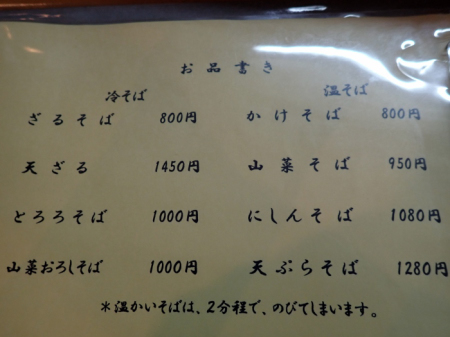 お品書き
冷そば
ざるそば 800円
天ざる 1450円
とろろそば 1000円
山菜おろしそば 1000円
温そば
かけそば 800円
山菜そば 950円
にしんそば 1080円
天ぷらそば 1280円
*温かいそばは、2分程で、のびてしまいます。